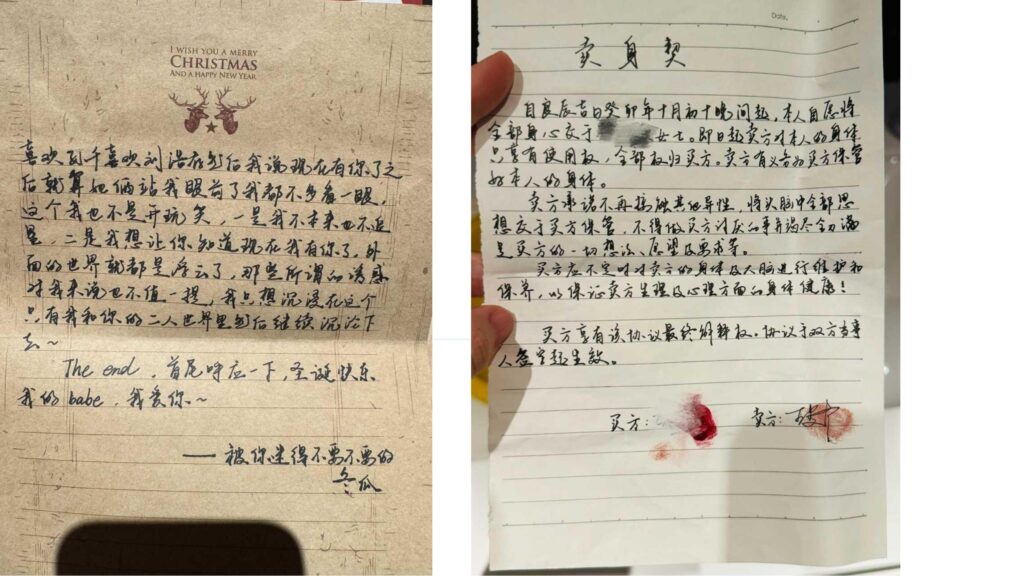 I WISH YOU A MERRY
CHRISTMAS
AND A HAPPY NEW YEAR
喜欢刘千喜欢刘浩存然后我说现在有你了之
后就算她俩站我眼前了我都不多看一眼,
这个我也不是开玩笑,一是我本来也不追
星,二是我想让你知道现在我有你了,外
面的世界就都是浮云了,那些所谓的诱惑
对我来说也不值一提,我只想沉浸在这个
只有我和你的二人世界里然后继续沉沦下
去~
The end,首尾呼应一下,圣诞快乐
我的babe,我爱你~
——被你迷得不要不要的
冬瓜
Date.
卖身契
自良辰吉日癸卯年十月初十晚间起,本人自愿将
全部身心交于 女士。即日起卖方对本人的身体
只享有使用权,全部权归买方。卖方有义务为买方保管
好本人的身体。
卖方承诺不再接触其他异性,将头脑中全部思
想交于买方保管,不得做买方讨厌的事并竭尽全力满
足买方的一切想法、愿望及要求等。
买方应不定时对卖方的身体及大脑进行维护和
保养,以保证卖方生理及心理方面的身体健康!
买方享有该协议最终解释权。协议于双方当事
人签字起生效。
买方: 卖方: